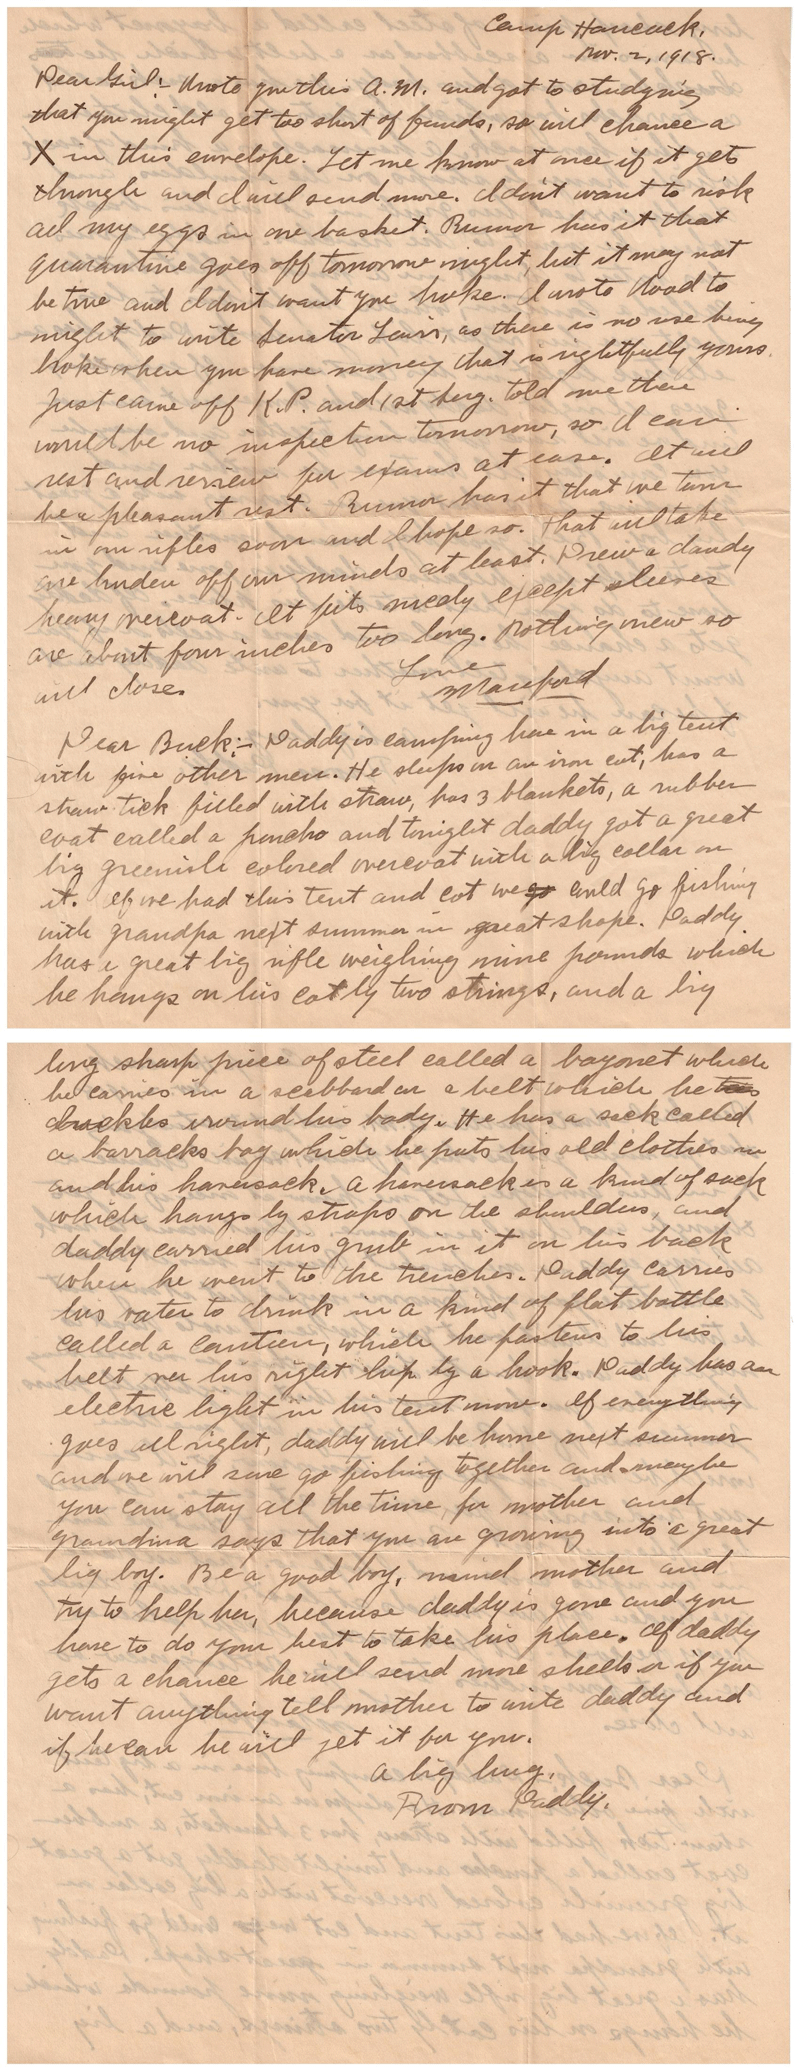 Camp Hancock,
Nov. 2, 1918.
Dear Girl:- Wrote you this A.M. and got to studying
that you might get too short of funds, so will chance a
X in this envelope. Let me know at once if it gets
through and I will send more. I don't want to risk
all my eggs in one basket. Rumor has it that
quarantine goes off tomorrow night, but it may not
be true and I don't want you broke. I wrote Hood to
might to write Senator Lewis, as there is no use being
broke when you have money that is rightfully yours.
Just came off K.P. and 1st Serg. told me there
would be no inspection tomorrow, so I can
rest and review for exams at ease. It will
be a pleasant rest. Rumor has it that we turn
in our rifles soon and I hope so. That will take
one burden off our minds at least. Drew a dandy
heavy overcoat. It fits nicely except sleeves
are about four inches too long. Nothing new so
will close.
Love
Maneford
Dear Buck:- Daddy is camping here in a big tent
with five other men. He sleeps on an iron cot, has a
straw tick filled with straw, has 3 blankets, a rubber
coat called a poncho and tonight daddy got a great
big greenish colored overcoat with a big collar on
it. If we had this tent and cot we go could go fishing
with grandpa next summer in great shape. Daddy
has a great big rifle weighing nine pounds which
he hangs on his cot by two strings, and a big
long sharp piece of steel called a bayonet which
he carries in a scabbard on a belt which he
buckles around his body. He has a sack called
a barracks bag which he puts his old clothes in
and his haversack. A haversack is a kind of sack
which hangs by straps on the shoulders, and
daddy carried his grub in it on his back
when he went to the trenches. Daddy carries
his water to drink in a kind of flat bottle
called a canteen, which he fastens to his
belt over his right hip by a hook. Daddy has an
electric light in his tent now. If everything
goes all right, daddy will be home next summer
and we will sure go fishing together and maybe
you can stay all the time, for mother and
grandma says that you are growing into a great
big boy. Be a good boy, mind mother and
try to help her, because daddy is gone and you
have to do your best to take his place. If daddy
gets a chance he will send more shells or if you
want anything tell mother to write daddy and
if he can he will get it for you.
A big hug,
From Daddy.